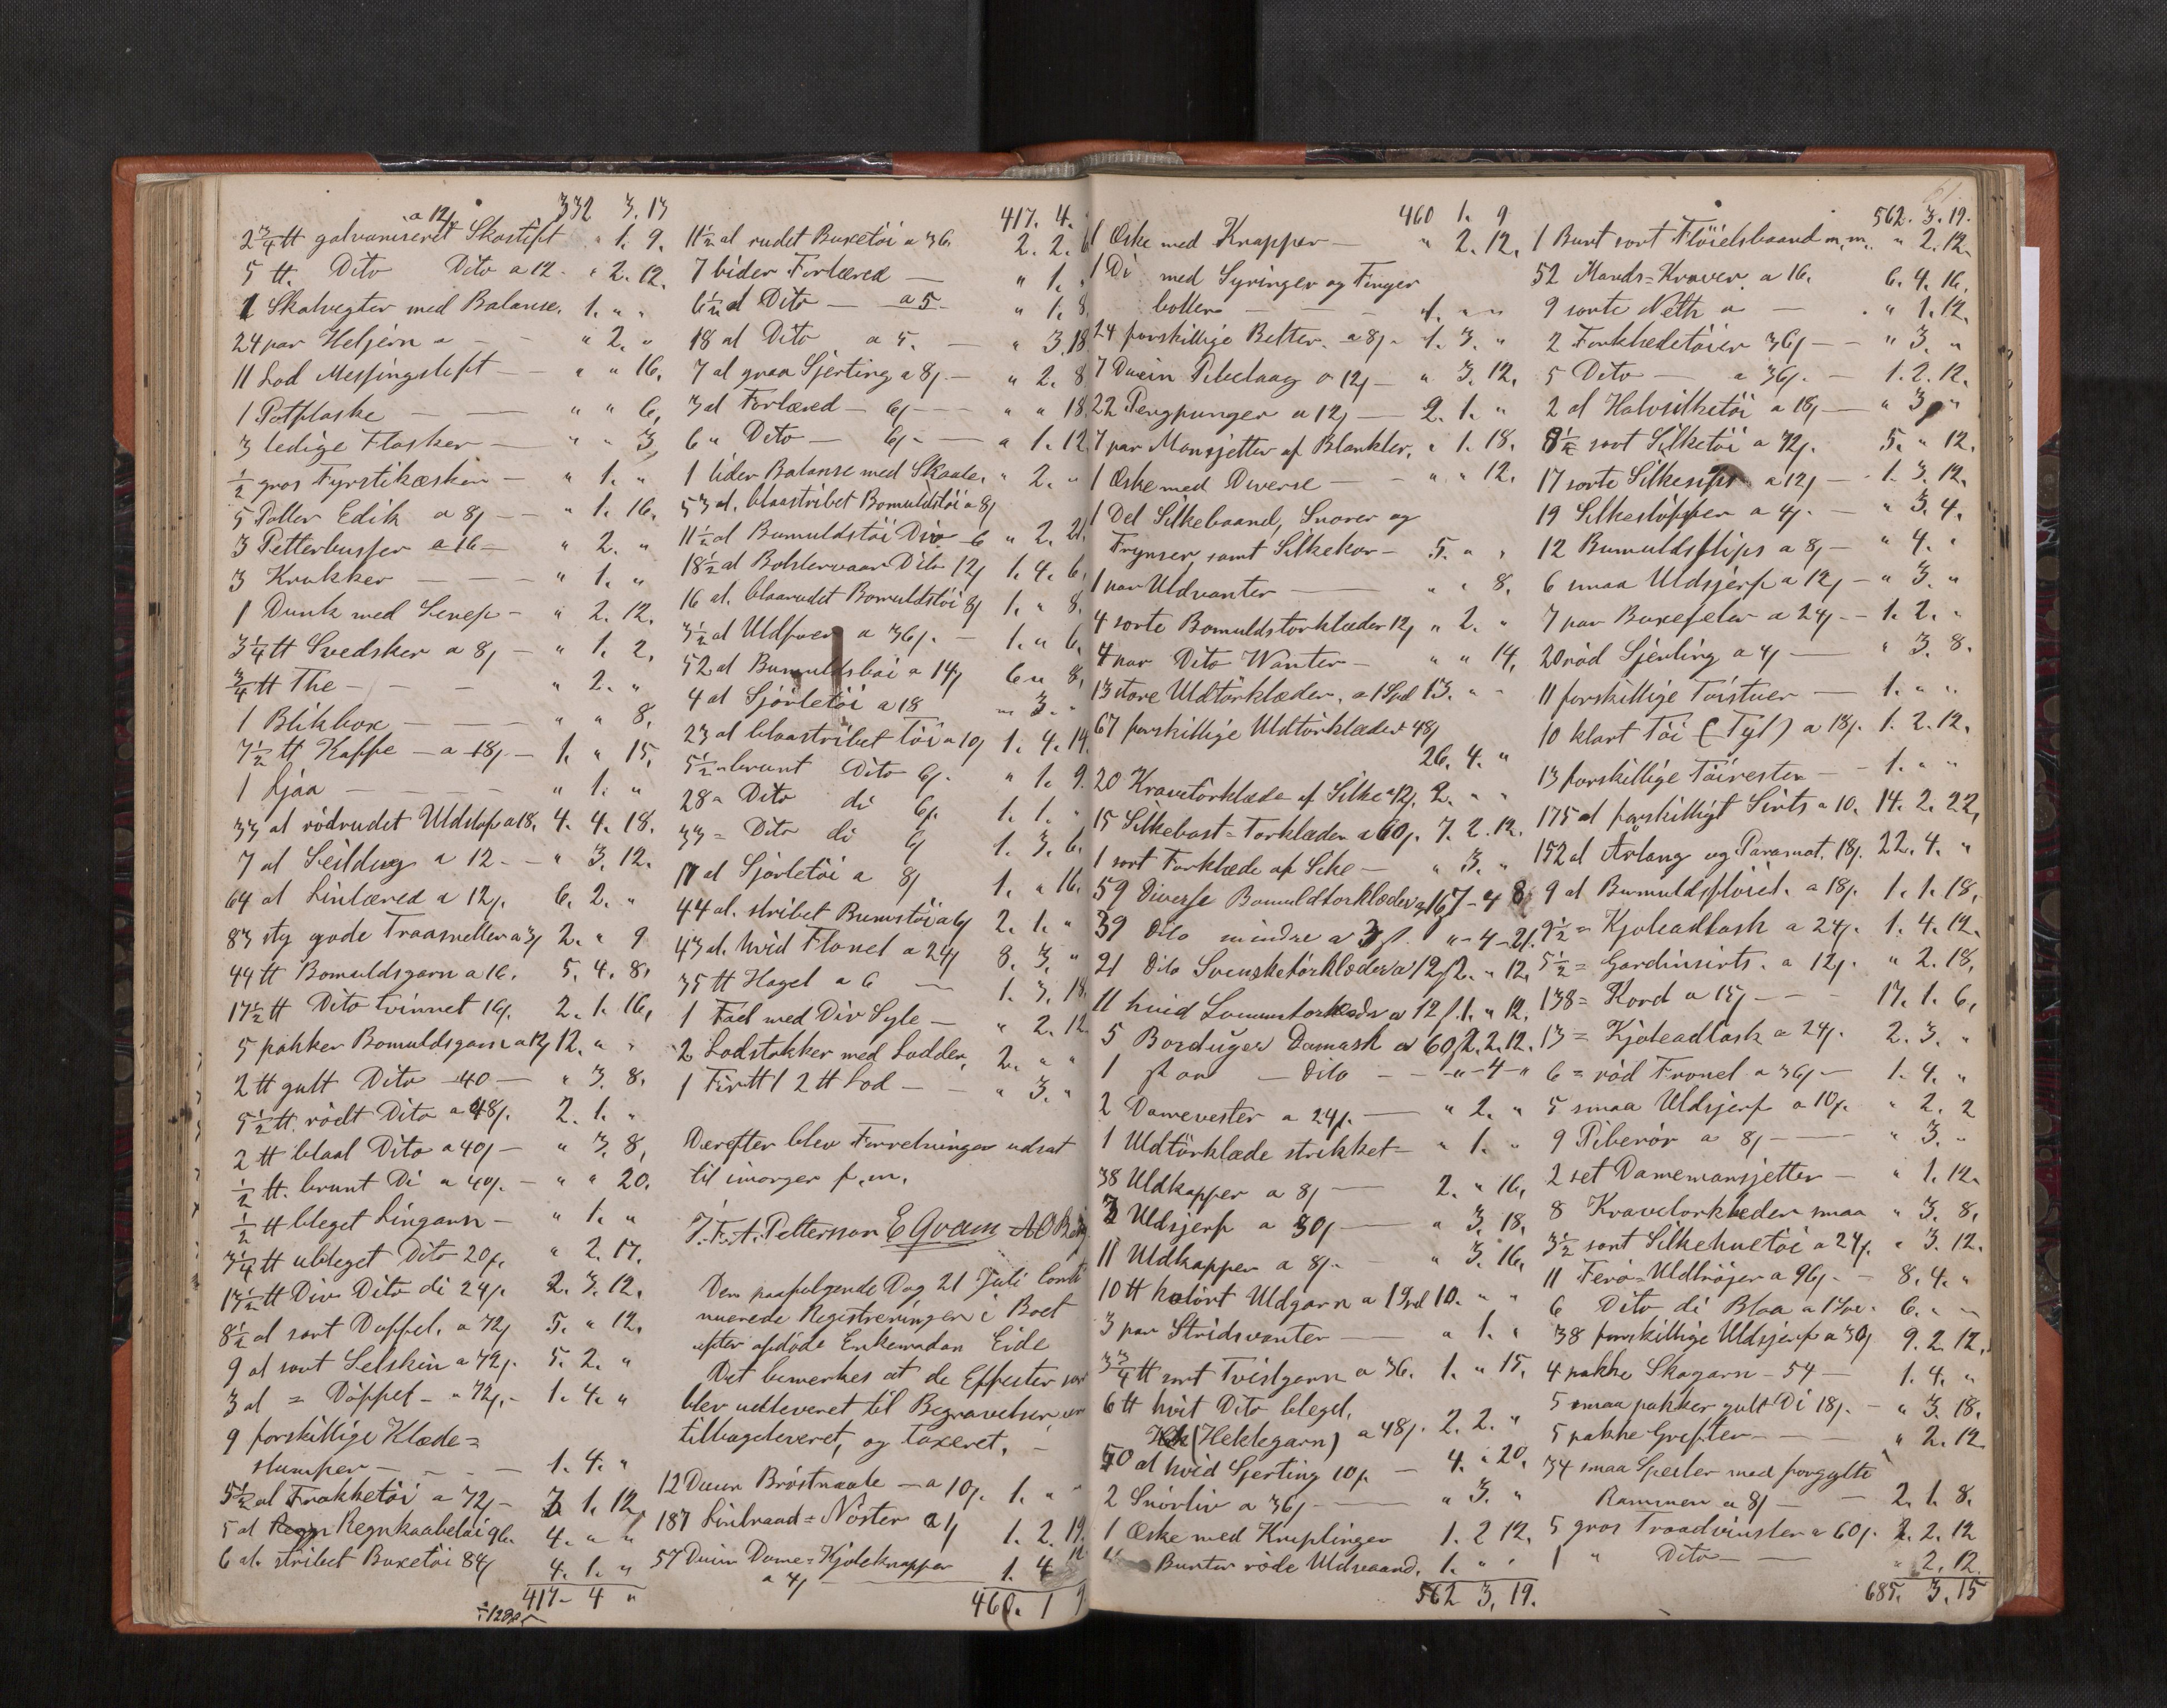 332 3. 13
a 12
2 3/4 tt galvaniseret Skostift " 1. 9.
5 tt. Dito Dito a 12 - " 2. 12.
1 Skalvegter med Balanse. 1. " "
24 par Heljern a - - " 2. "
11 Lod Messingstift - - " " 16.
1 Potflaske - - " " 6,
3 ledige Flasker - " " 3,
1/2 gros Fyrstikæsker - " 1. "
5 Potter Edik a 8 - " 1. 16.
3 Petterbusser a 16 - " 2. "
3 Krukker - - - " 1. "
1 Dunk med Senep - " 2. 12.
3 1/4 tt Svedsker a 8 - " 1. 2,
3/4 tt The - - - " 2. "
1 Blikboxe - - - " " 8,
7 1/2 tt Kaffe - a 18 - 1. " 15,
1 Ljaa - - - " 1. "
33 al rödrudet Uldstof a 18. 4. 4. 18.
7 al Seildug a 12 - - " 3. 12.
64 al Linlæred a 12. 6. 2. "
83 sty gode Traasneller a 3 2. " 9
44 tt Bomuldsgarn a 16. 5. 4. 8.
17 1/2 tt Dito tvinnet 16. 2. 1. 16,
5 pakker Bomuldsgarn a 12. " "
2 tt gult Dito - 40 - " 3. 8.
5 1/2 tt. rödt Dito a 48. 2. 1. "
2 tt blaat Dito a 40 - " 3. 8,
1/2 tt. brunt Di a 40. - " " 20.
1/2 tt bleget Lingarn - " 1. "
3 1/4 tt ubleget Dito 20. " 2. 17.
13 1/2 tt Div Dito di 24. 2. 3. 12.
8 1/2 al sort Doppel. a 72 5. " 12.
9 al sort Selskin a 72. 5. 2. "
3 al = Döppel - a 72. - 1. 4. "
9 forskillige Klæde=
stumper - - - 1. 4. "
5 1/2 al Frakketöi a 72 - 3 1. 12,
5 al Regnkaabetöi 96. 4. " "
6 al. stribet Buxetöi 84 4. 1. "
417 - 4 "
417. 4. "
11 1/2 al rudet Buxetöi a 36. 2. 2. 6
7 bider Forlæred - " 1. "
6 1/2 al Dito - a 5 - " 1. 8
18 al Dito a 5. - " 3 18
7 al graa Sjerting a 8 - " 2. 8
3 al Forlæred - 6 - - " " 18
6 " Dito - 6 - - " 1. 12
1 liden Balanse med Skaaler " 2. "
53 al. blaastribet Bomuldstöi a 8
11 1/2 al Bumuldstöi Div - 6 " 2. 21.
18 1/2 al Bolstervaar Dito 12 1. 4. 6.
16 al. blaarudet Bomuldstöi 8 1. " 8.
3 1/2 al Uldfoer a 36. - 1. " 6.
52 al Bumuldsboi a 14 6 " 8,
4 al Sjörletöi a 18 " 3. "
23 al blaastribet Töi a 10 1. 4. 14.
5 1/2 " brunt Dito 6. " 1. 9.
28 " Dito di 6. 1. 1. "
33 = Dito di 6 1. 3. 6.
17 al Sjörletöi a 8 1. " 16.
44 al. stribet Bumstöi a 6 2. 1. "
43 al. hvid Flonel a 24 8. 3. "
35 tt Hagel a 6 - 1. 3. 18.
1 Fad med Div Syle - " 2. 12
2 Lodstokker med Lodder, 2. " "
1 Fir tt 1 2 tt Lod - - " 3. "
Derefter blev Forretningen udsat
til imorgen f.m.
J. F. A. Petterson E Qvam
Den paafölgende Dag 21 Juli Conti
nuerede Registreringen i Boet
efter afdöde Enkemadam Eide
Det bemerkes at de Effecter som
blev udleveret til Begravelsen er
tilbageleveret, og taxeret. -
12 Dusin Bröstnaale - a 10. 1. " "
187 Lintraad = Nöster a 1 1. 2. 19.
57 Dusin Dame = Kjoleknapper 1. 4
a 4 -
460. 1 9
460 1. 9
1 Æske med Knapper - " 2. 12.
1 Di med Syringer og Finger
boller - - - 1. " "
24 forskillige Belter. a 8 - 1. 3. "
7 Dusin Pibelaag a 12 - " 3. 12,
22 Pengpunger a 12 - 2. 1. "
7 par Mansjetter af Blankler. " 1. 18.
1 Æske med Diverse - - " " 12.
1 Del Silkebaand, Snorer og
Frynser, samt Silkekor - 5. " "
1 par Uldvanter - " " 8.
4 sorte Bomuldstorklæder 12 " 2. "
4 par Dito Wanter - " " 14,
13 store Uldtörklæder. a 1 Spd 13. " "
67 forskillige Uldtörklæder 48
26. 4. "
20 Kravetörklæde af Silke a 12. 2. " "
15 Silkebast = Torklæder a 60. 7. 2. 12.
1 sort Forklæde af Silke - " 3. "
59 Diverse Bomuldtorklæder a 16 7 - 4 8
39 Dito mindre a 3 " - 4 - 21.
21 Dito Svensketörklæder a 12 2. " 12.
11 hvid Lommetorklæde a 12 1. " 12.
5 Borduger Damask a 60 2. 2. 12.
1 - Dito - - " - 4 - "
2 Damevester a 24. - " 2. "
1 Uldtörklæde strikket - " 1. "
38 Uldkapper a 8 - 2. " 16,
3 Uldsjerf a 30 - " 3. 18.
11 Uldkapper a 8. - " 3. 16,
10 tt kolört Uldgarn a 1 Spd 10. " "
3 par Stridsvanter - " 1. "
3 3/4 tt sort Tvistgarn a 36. 1. " 15.
6 tt hvit Dito bleget,
(Heklegarn) a 48. 2. 2. "
50 al hvid Sjerting 10. - 4. " 20.
2 Snörliv a 36 - " 3. "
1 Æske med Kruplinger 1. 2 12.
Bunter röde Uldbaand. 1. " "
562 3. 19.
562. 3. 19.
1 Bunt sort Flöielsbaand m.m. " 2. 12.
52 Mands = Kraver. a 16. 6. 4. 16.
9 sorte Neth a - " 1. 12.
2 Forklædetöier 36 - - " 3. "
5 Dito - a 36. - 1. 2. 12.
2 al Halvsilketöi a 18 - " 3 "
8 1/2 sort Silketöi a 72. 5. " 12.
17 sorte Silkeslips a 12 - 1. 3. 12.
19 Silkeslöffer a 4. - " 3. 4.
12 Bumuldsflips a 8 - " 4. "
6 smaa Uldsjerf a 12 - " 3. "
7 par Buxeseler a 24 - - 1. 2. "
20 röd Sjerting a 4 - " 3. 8.
11 forskillige Töistuer - 1. " "
10 klart Töi (Tyl) a 18. 1. 2. 12.
13 forskillige Töirester - - 1. " "
175 al forskilligt Sirts a 10. 14. 2. 22,
152 al Ørlang og Paramat. 18. 22. 4. "
9 al Bumuldsflöiel. a 18. 1. 1. 18.
9 1/2 = Kjoleadlask a 24. 1. 4. 12.
5 1/2 = Gardinsirts. a 12. " 2. 18,
138 = Kord a 15 - - 17. 1. 6,
13 = Kjoleadlask a 24. 2. 3. "
6 = röd Fronel a 36 - 1. 4. "
5 smaa Uldsjerf a 10. " 2. 2
9 Piberör a 8 - - " 3. "
2 set Damemansjetter - " 1. 12.
8 Kravetorklæder smaa " 3. 8,
3 1/2 sort Silkehuetöi a 24. " 3. 12.
11 Ferö = Uldtröjer a 96. - 8. 4. "
6 Dito di Blaa a 1 Spd. 6. " "
38 forskillige Uldsjerf a 30 9. 2. 12.
4 pakke Skogarn - 54 - 1. 4. "
5 smaa pakker gult Di 18. - " 3. 18.
5 pakke Grifter - - - " 2. 12
34 smaa Speiler med forgylte
Rammer a 8 - - 2. 1. 8.
5 gros Traadvinsler a 60. 2. 2. 12
1 " Dito - - " 2. 12.
685. 3. 15